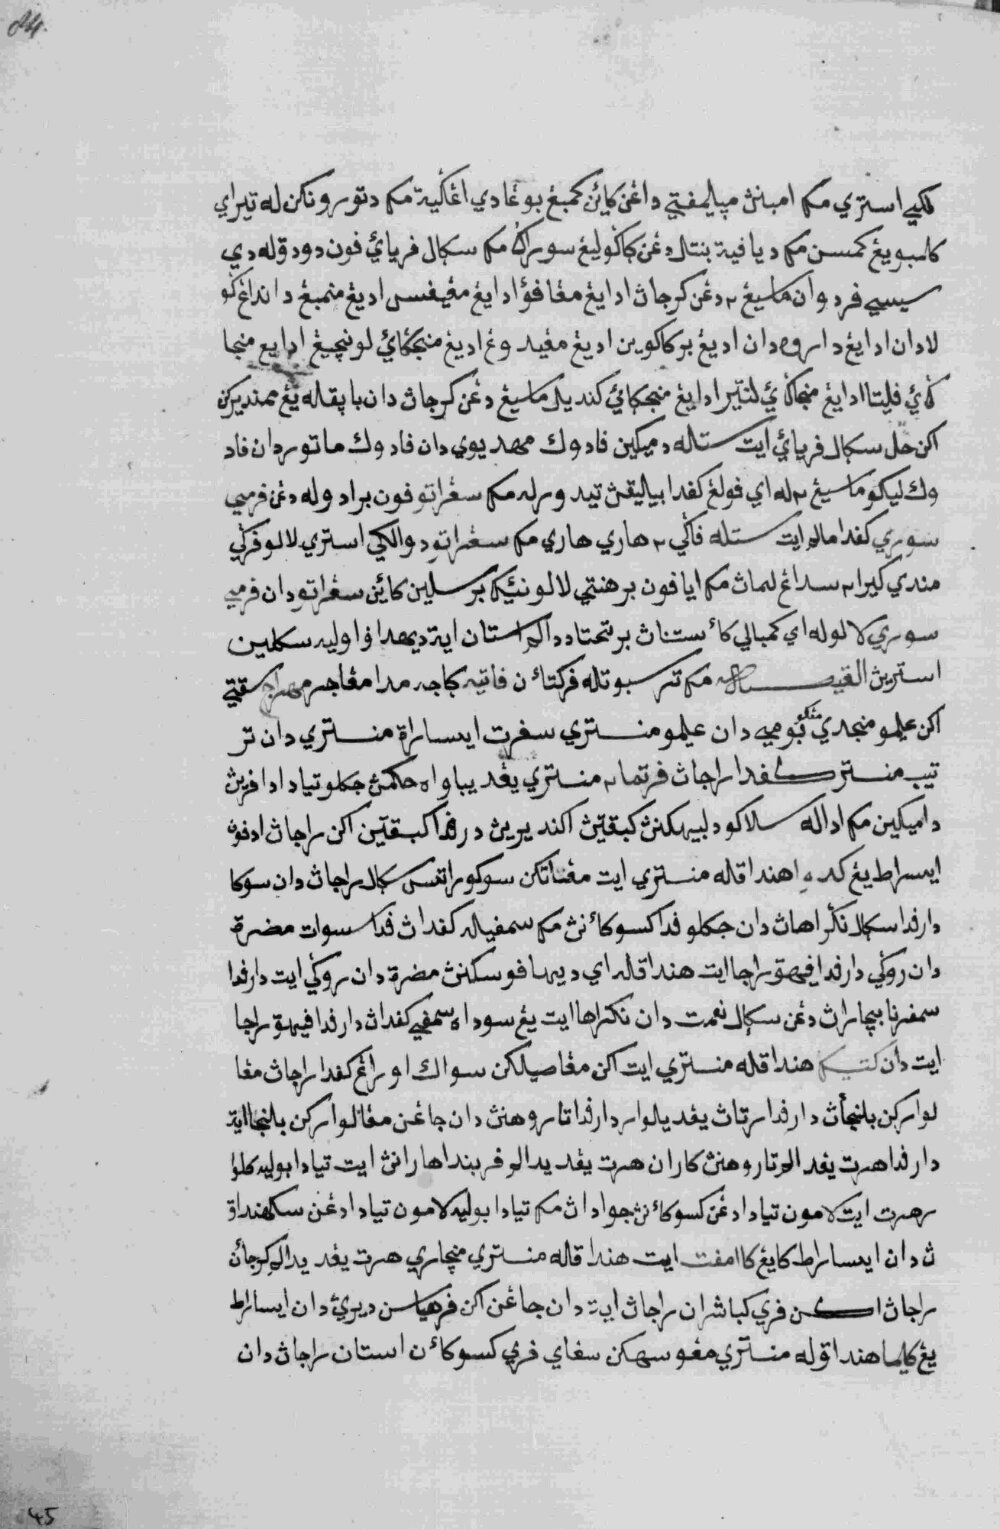 24.
لكيي استري مك امبنڽ ميليمڤتي داڠن كاين كمبڠ بوڠا دي اڠكية مك دتورونكن له تيراي
كلمبو يڠ كمسن مك ديافيه بنتل دڠن كاكوليڠ سوركا مك سكال ڤرياي ڤون دودقله دي
سيسي ڤردوان ماسيڠ٢ دڠن كرجاڽ ادا يڠ مڠاڤؤ ادا يڠ مڠيڤس اديڠ منمبڠ داندڠ كو
لادان ادايڠ دارو دان اديڠ بركاكوين اديڠ مڠيد وڠ اديڠ منجكاي لونچيڠ ادايڠ منجا
كاي ڤليتا ادايڠ منجاكاي لنتيرا ادايڠ منجكاي كنديل ماسيڠ دڠن كرجاڽ دان باڤقله يڠ ممنديركن
اكن حل سكال ڤرياي ايت ستله دميكين ڤادوك مهديوي دان ڤادوك ماتوردان ڤاد
وك ليكو ماسيڠ٢ له اي ڤولڠ كڤدا بيليقڽ تيدورله مك سڠراتو ڤون برادوله دڠن ڤرميي
سوري كڤدا مالم ايت ستله ڤاكي٢ هاري هاري مك سڠراتو دوالكي استري لالو ڤركي
مندي كيرام سداڠ لماڽ مك اياڤون برهنتي لالو نيك برسلين كاين سڠراتو دان ڤرميي
سوري لالوله اي كمبالي كاستناڽ برتحتا ددالم استان ايت ديهداڤ اوليه سكلين
استريڽ القصه مك ترسبوتله ڤركتاءن ڤاتيه كاجه مدا مڠاجر مهراج سقتي
اكن علمو منجدي ڤڠكو بومي دان علمو منتري سڤرت ايسارة منتري دان تر
تيب منتري كڤدا راجاڽ ڤرتمام منتري يڠديباواه حكمڽ جكلو تيادا داڤريڽ
دميكين مك اداله سلاكو دبيهكنڽ كبقتيڽ اكنديريڽ درڤدا كبقتين اكن راجاڽ ادڤون
ايسارط يڠ كدو هنداقله منتري ايت مڠناتكن سوكو راتس سكال راجاڽ دان سوكا
دارڤدا سكال نكراهاڽ دان جكلو ڤدا كسوكاءنڽ مك سمڤيله كڤداڽ ڤدا سسوات مضرة
دان روكي دارڤدا ڤيهق راجا ايت هنداقله اي ديهاڤوسكنڽ مضرة دان روكي ايت دارڤدا
سمڤرنا بيچاراڽ دڠن سكال نعمت دان نكراها ايت يڠ سوداه سمڤي كڤداڽ دارڤدا ڤيهق راجا
ايت دان كتيك هنداقله منتري ايت اكن مڠاصيلكن سواك اورڠ كڤدا راجاڽ مڠا
لوارركن بلنجاڽ دارڤدا ارتاڽ يڠديلوار دارڤدا تاروهنڽ دان جاڠن مڠالواركن بلنجا ايت
دارڤدا هرت يڠدالم تاروهنڽ كاران هرت يڠديدالم ڤربنداهارانڽ ايت تيادا بوليه كلوا
رهرت ايت نامون تيادا دڠن كسوكاءنڽ جواداڽ مك تيادا بوليه لامون تيادا دڠن سكهنداق
ڽ دان ايسارط كايڠ كاامڤت ايت هنداقله منتري منچاري هرت يڠديدالم كرجاءن
راجاڽ اكن ڤري كباشران راجاڽ ايت دان جاڠن اكن ڤرهياسن ديري دان ايسارط
يڠ كليما هنداقوله منتري مڠوسهكن سڠاي ڤري كسوكاءن استان راجاڽ دان
45